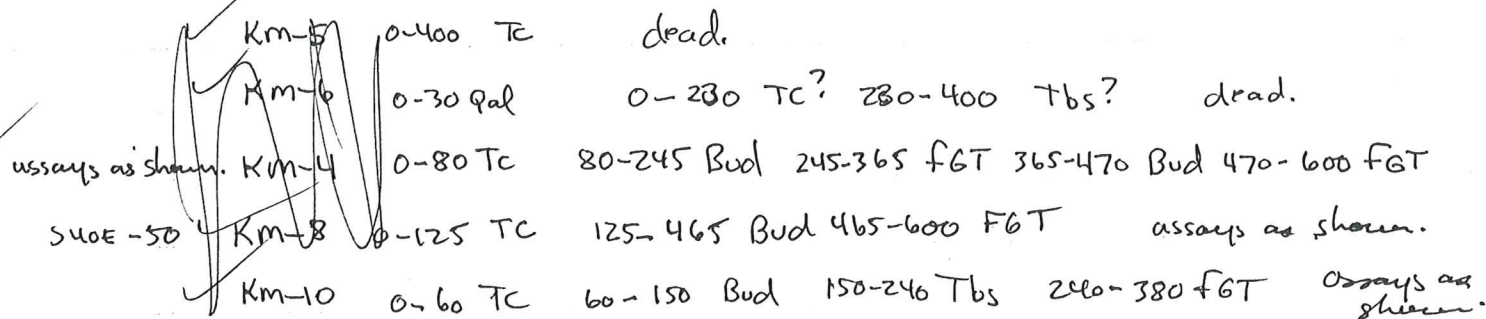 Km-5 0-400 TC dead.
Km-6 0-30 Qal 0-230 TC? 230-400 Tbs? dead.
assays as shown. Km-4 0-80 TC 80-245 Bud 245-365 FGT 365-470 Bud 470-600 FGT
S40E-50 Km-8 0-125 TC 125-465 Bud 465-600 FGT assays as shown.
Km-10 0-60 TC 60-150 Bud 150-240 Tbs 240-380 FGT assays as shown.